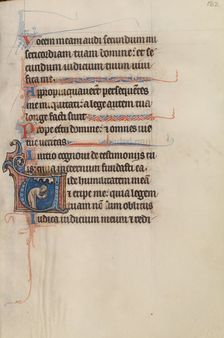 182
Vocem meam audi secundum mi
sericordiam tuam domine: et se
cundum iudicium tuum uiui
fica me.
Appropinquauerunt persequentes
me iniquitati: a lege autem tua
longe facti sunt.
Prope es tu domine: et omnes uie
tue ueritas.
Initio cognoui de testimoniis tu
is: quia in eternum fundasti ea.
ide humilitatem meam
et eripe me: quia legem
tuam non sum oblitus
Iudica iudicium meum et redi